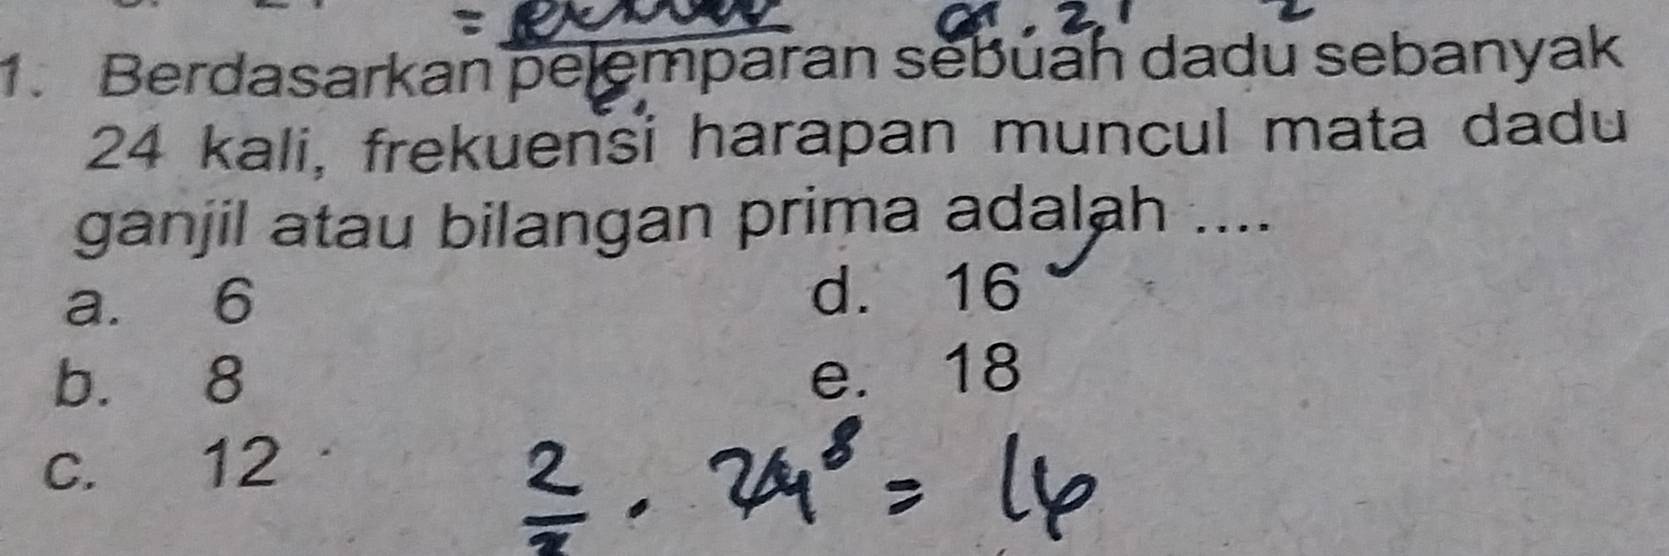 1. Berdasarkan pelemparan sebuah dadu sebanyak
24 kali, frekuensi harapan muncul mata dadu
ganjil atau bilangan prima adalah ....
a. 6
d. 16
b. 8
e. 18
c. 12
2/3 . 24 8 = 16